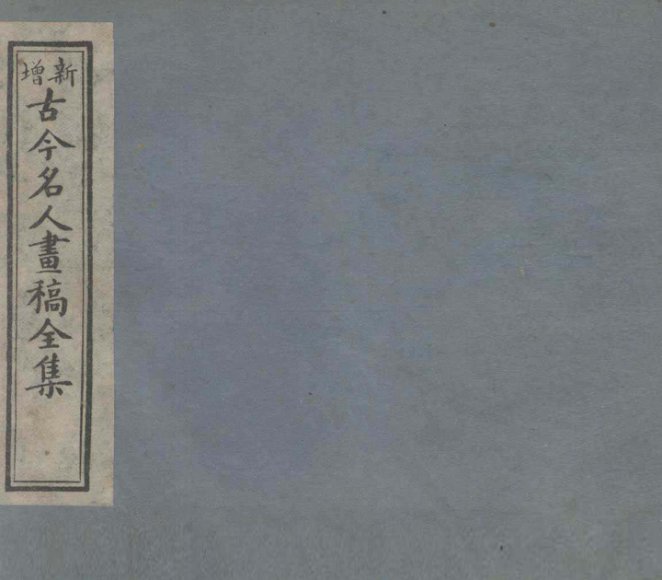 新增
古今名人畫稿全集